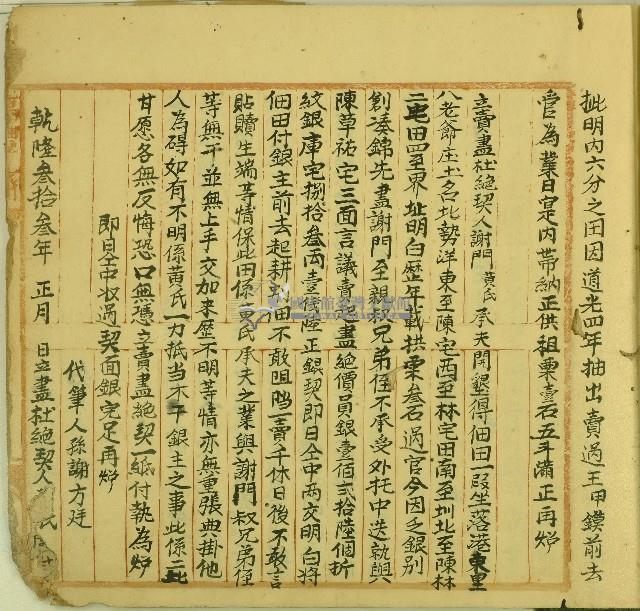 批明内六分之田因道光四年抽出賣過王甲鏷前去
管為業日定内帶納正供租粟壹石五斗滿正再炤
立賣盡杜絕契人謝門黃氏承夫開墾得佃田一段坐落港東里
八老爺庄土名北勢洋東至陳宅西至林宅田南至圳北至陳林
二宅田四至界址明白歷年載拱粟叁石過官今因乏銀別
創凑錦先盡謝門至親叔兄弟侄不承受外托中送就與
陳草祐宅三面言議賣過盡絕價員銀壹佰弍拾陸個折
紋銀庫宅捌拾叁両壹 陸正銀契即日仝中両交明白將
佃田付銀主前去起耕 田不敢阻擋一賣千休日後不敢言
貼贖生端等情保此田係黃氏承夫之業與謝門叔兄弟侄
等無干並無上手交加来歷不明等情亦無重張典掛他
人為碍如有不明係黃氏一力抵当不干銀主之事此係二比
甘愿各無反悔恐口無憑立賣盡絕契一紙付執為炤
即日仝中收過契面銀完足再炉
代筆人孫謝方廷
乾隆叁拾叁年 正月 日立盡杜絕契人 氏